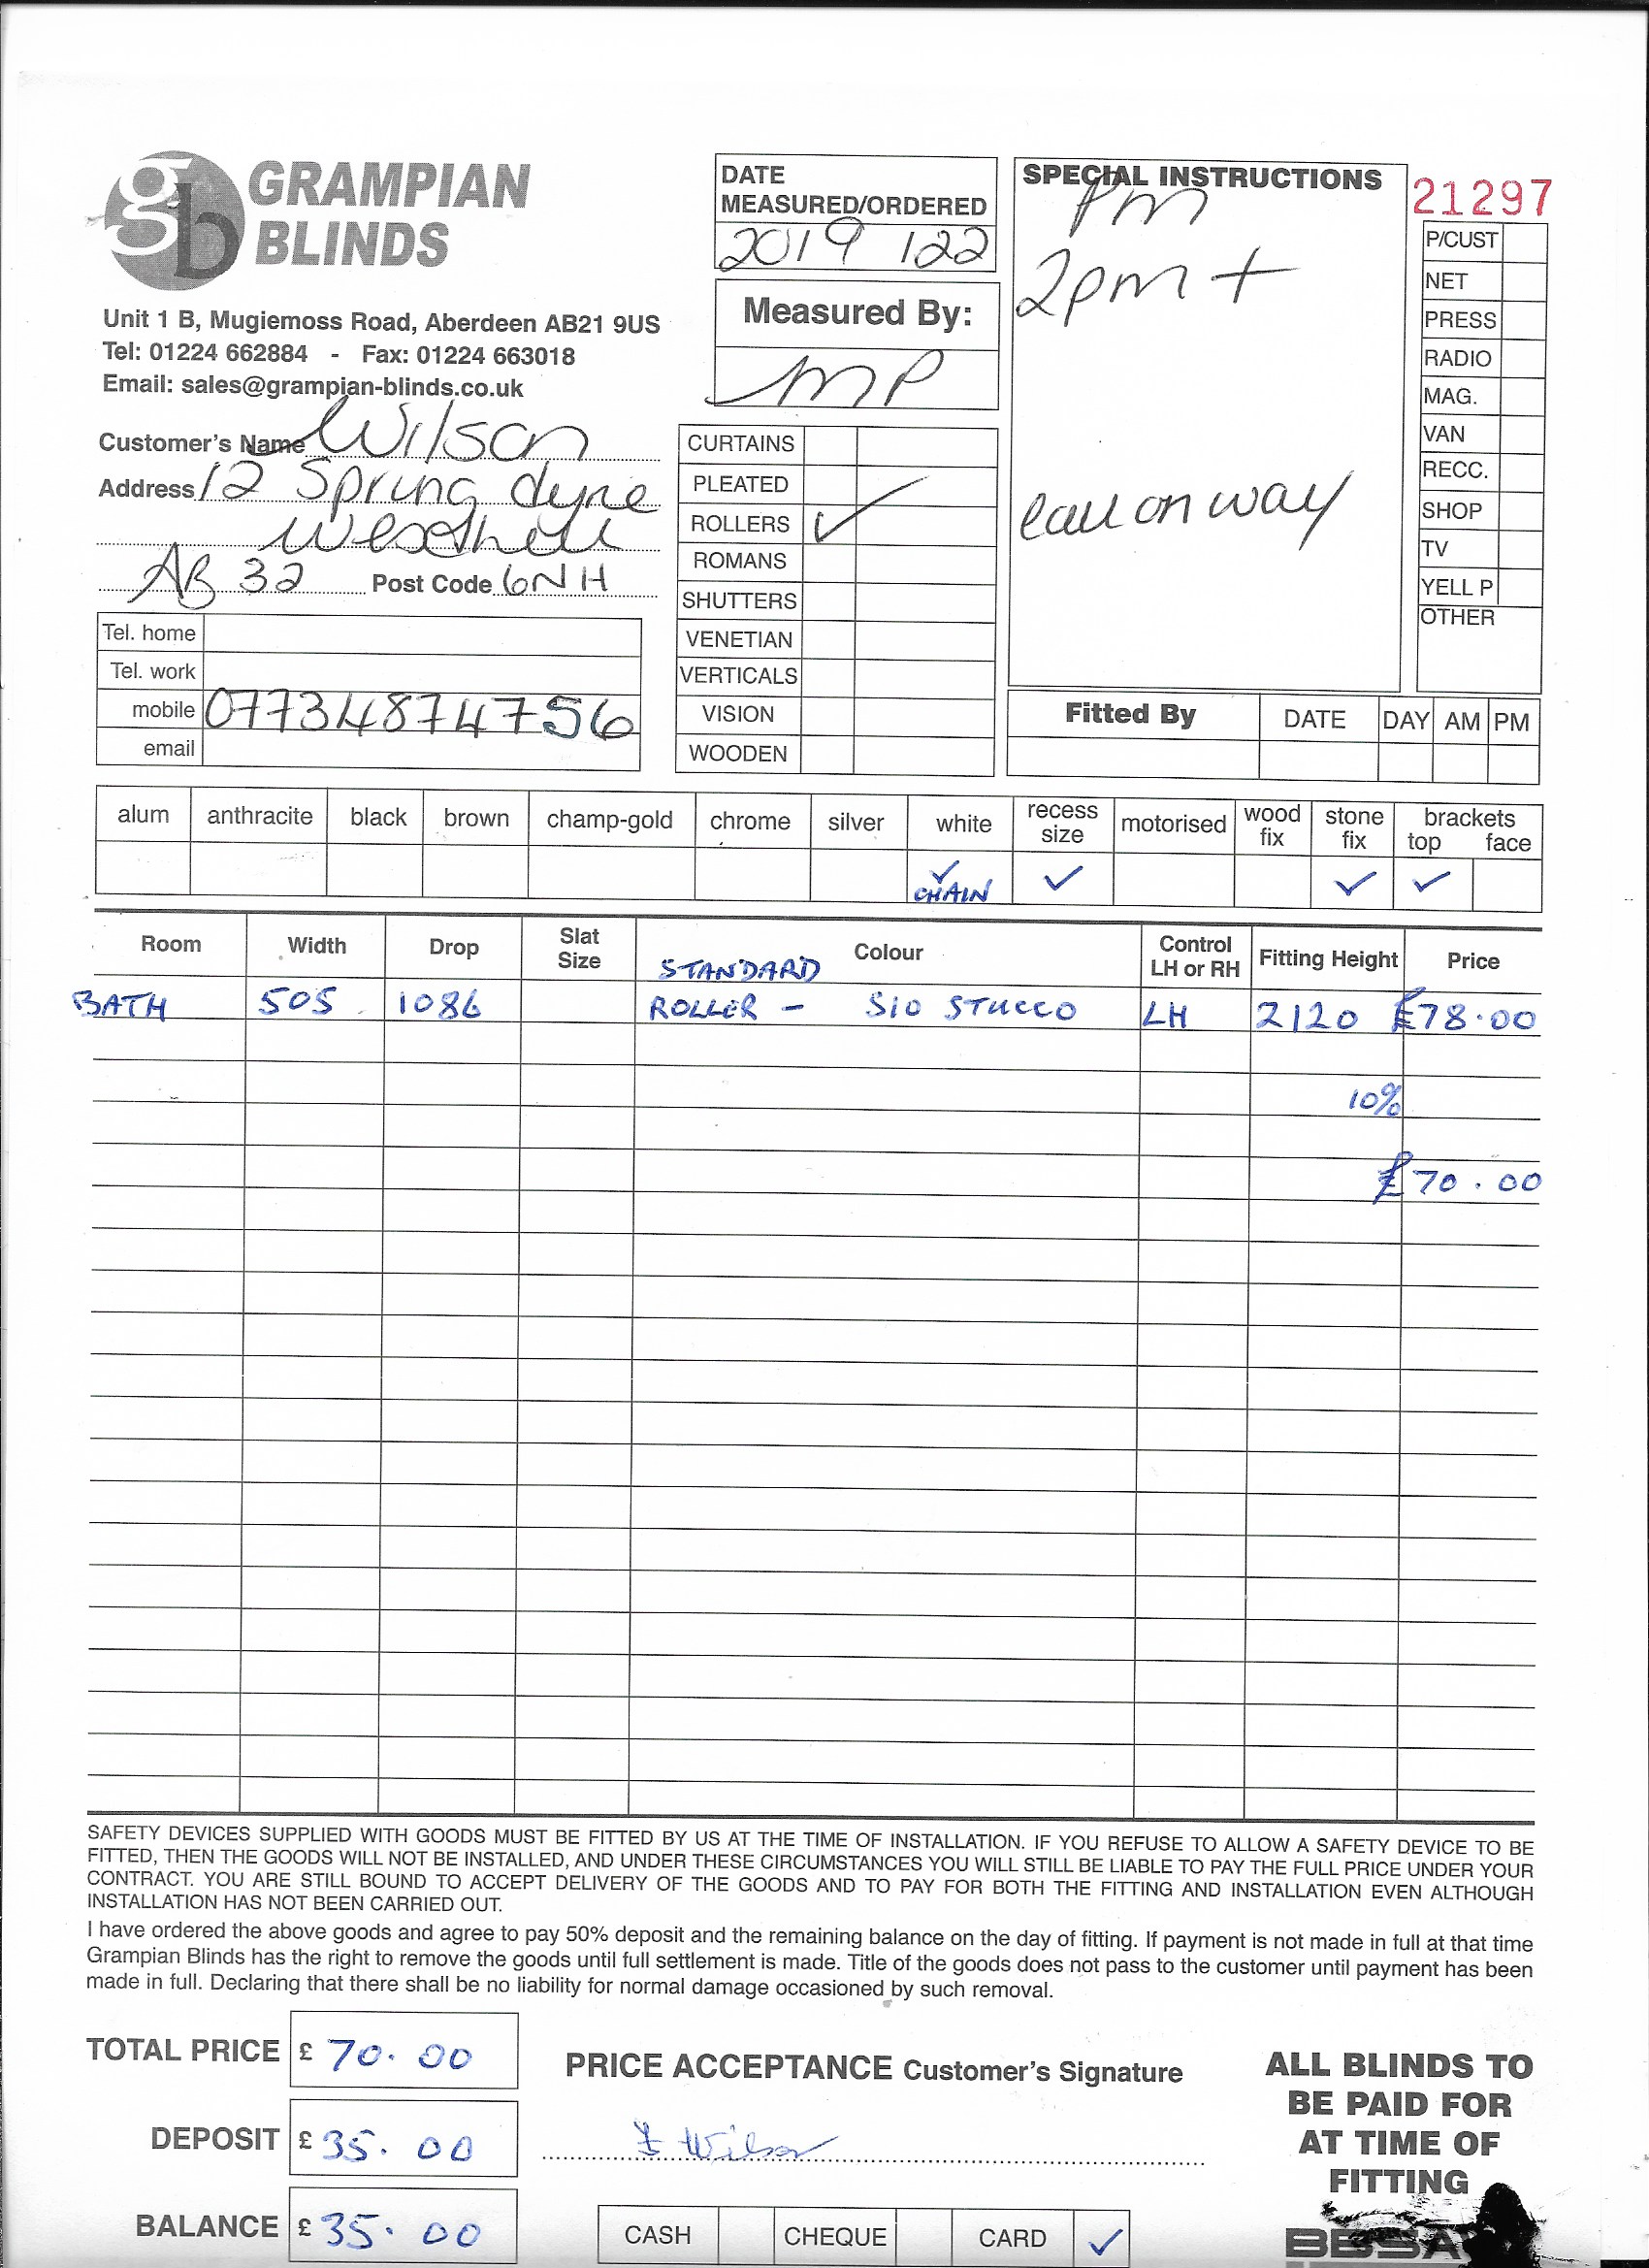 gb GRAMPIAN
BLINDS
Unit 1 B, Mugiemoss Road, Aberdeen AB21 9US
Tel: 01224 662884 - Fax: 01224 663018
Email: sales@grampian-blinds.co.uk
Customer's Name Wilson
Address 12 Spring dyne
Westhill
AB 32 Post Code 6NH
Tel. home
Tel. work
mobile 07734874756
email
DATE
MEASURED/ORDERED
2019 122
Measured By:
MP
CURTAINS
PLEATED
ROLLERS ✓
ROMANS
SHUTTERS
VENETIAN
VERTICALS
VISION
WOODEN
SPECIAL INSTRUCTIONS
Pm
2pm +
call on way
21297
P/CUST
NET
PRESS
RADIO
MAG.
VAN
RECC.
SHOP
TV
YELL P
OTHER
Fitted By DATE DAY AM PM
alum anthracite black brown champ-gold chrome silver white recess size motorised wood fix stone fix brackets top face
✓ CHAIN ✓ ✓ ✓
Room Width Drop Slat Size Colour Control LH or RH Fitting Height Price
STANDARD
BATH 505 1086 ROLLER - S10 STUCCO LH 2120 £78.00
10%
£70.00
SAFETY DEVICES SUPPLIED WITH GOODS MUST BE FITTED BY US AT THE TIME OF INSTALLATION. IF YOU REFUSE TO ALLOW A SAFETY DEVICE TO BE
FITTED, THEN THE GOODS WILL NOT BE INSTALLED, AND UNDER THESE CIRCUMSTANCES YOU WILL STILL BE LIABLE TO PAY THE FULL PRICE UNDER YOUR
CONTRACT. YOU ARE STILL BOUND TO ACCEPT DELIVERY OF THE GOODS AND TO PAY FOR BOTH THE FITTING AND INSTALLATION EVEN ALTHOUGH
INSTALLATION HAS NOT BEEN CARRIED OUT.
I have ordered the above goods and agree to pay 50% deposit and the remaining balance on the day of fitting. If payment is not made in full at that time
Grampian Blinds has the right to remove the goods until full settlement is made. Title of the goods does not pass to the customer until payment has been
made in full. Declaring that there shall be no liability for normal damage occasioned by such removal.
TOTAL PRICE £ 70.00
DEPOSIT £ 35.00
BALANCE £ 35.00
PRICE ACCEPTANCE Customer's Signature
Wilson
CASH CHEQUE CARD ✓
ALL BLINDS TO
BE PAID FOR
AT TIME OF
FITTING
BBSA